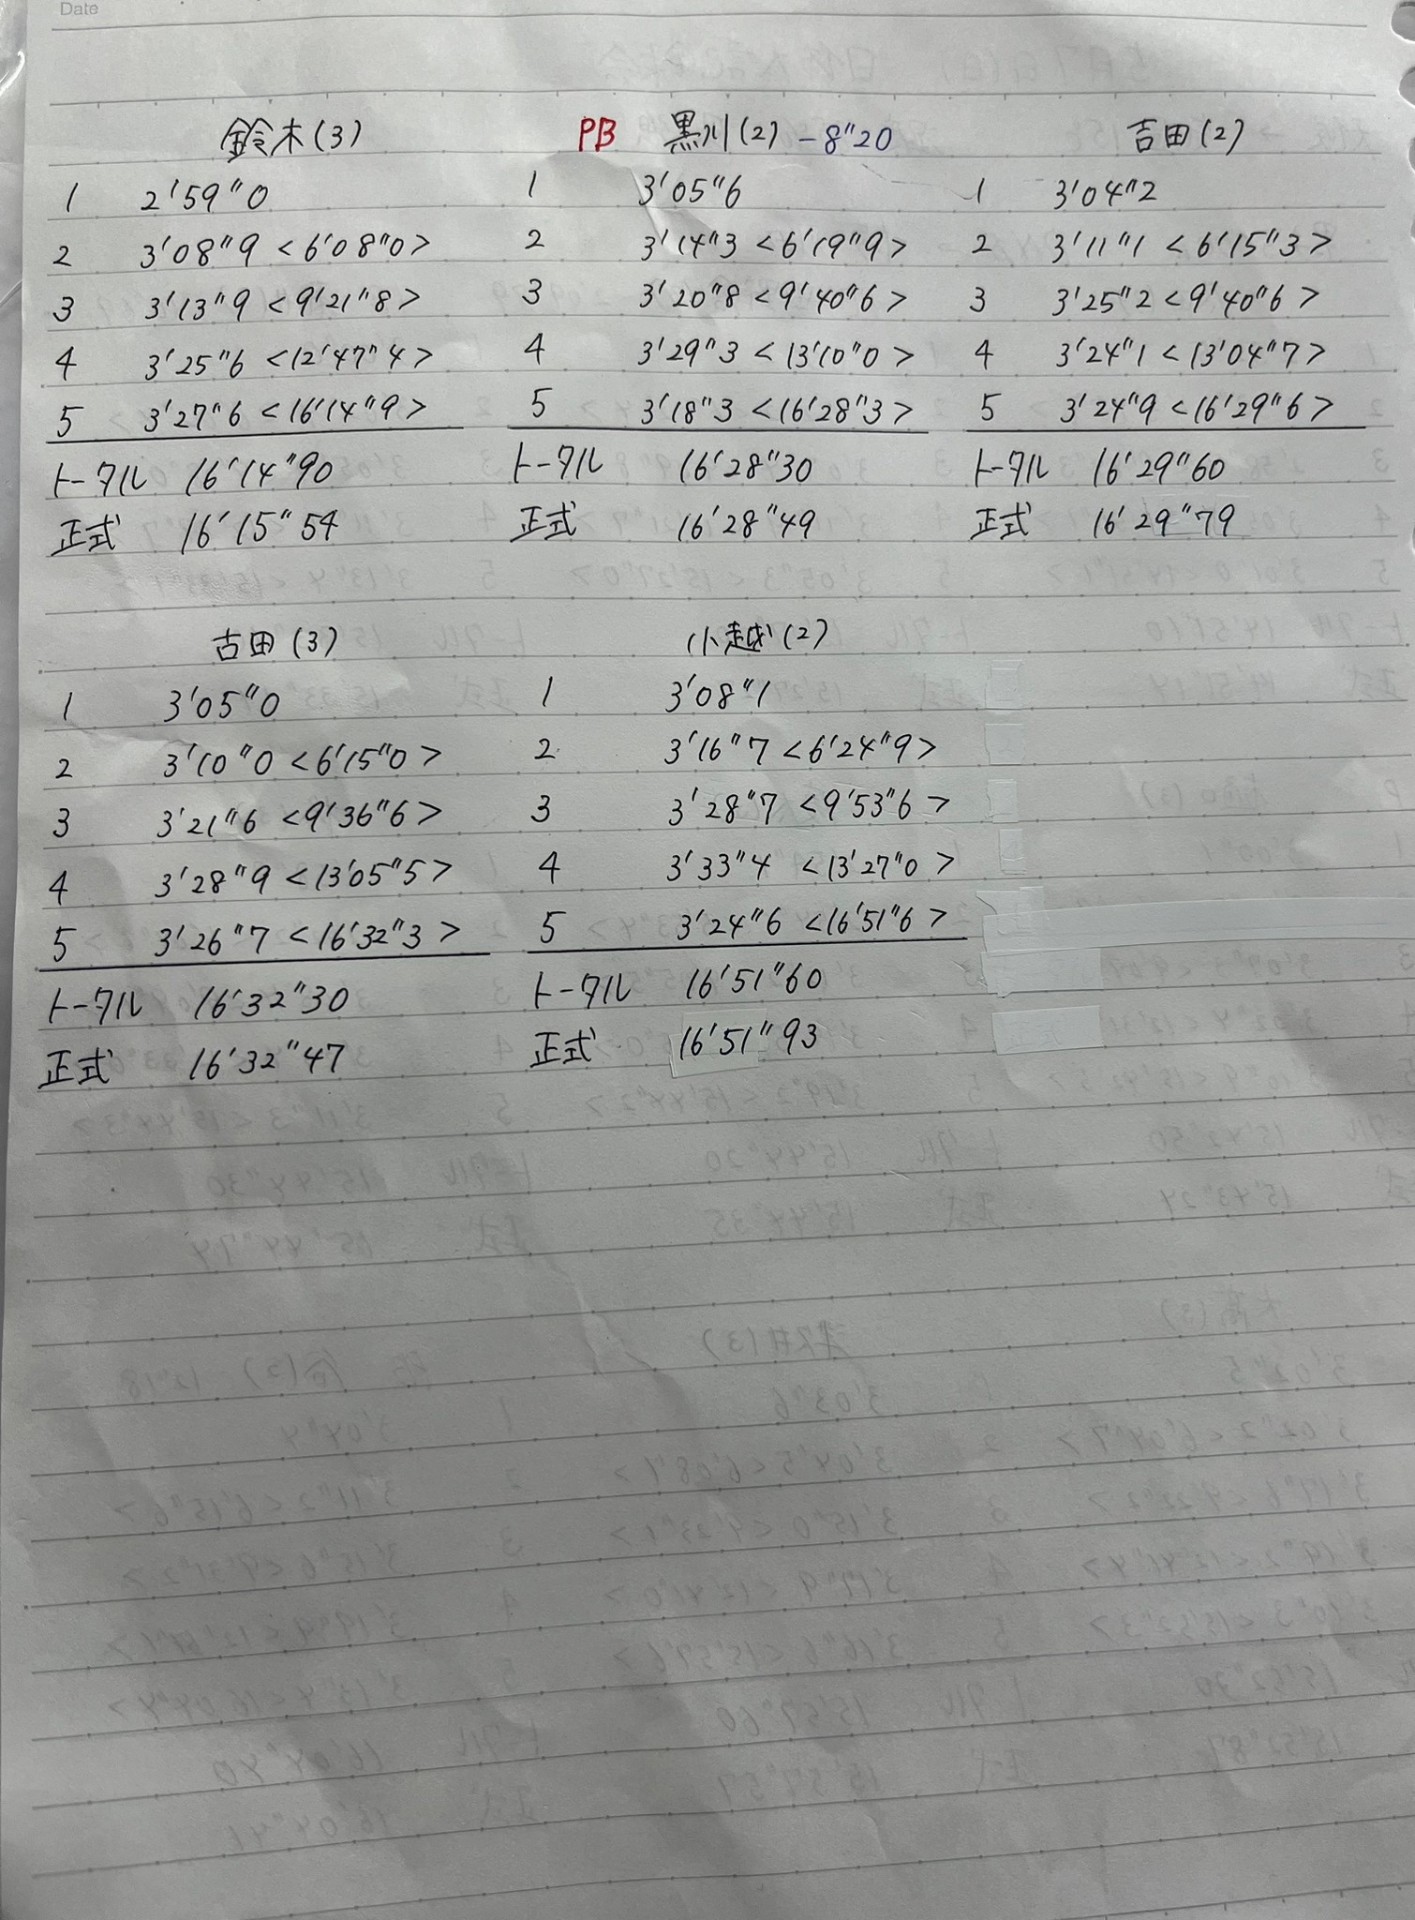 Date
鈴木(3)
1 2'59"0
2 3'08"9 <6'08"0>
3 3'13"9 <9'21"8>
4 3'25"6 <12'47"4>
5 3'27"6 <16'14"9>
トータル 16'14"90
正式 16'15"54
PB 黒川(2) -8"20
1 3'05"6
2 3'14"3 <6'19"9>
3 3'20"8 <9'40"6>
4 3'29"3 <13'10"0>
5 3'18"3 <16'28"3>
トータル 16'28"30
正式 16'28"49
吉田(2)
1 3'04"2
2 3'11"1 <6'15"3>
3 3'25"2 <9'40"6>
4 3'24"1 <13'04"7>
5 3'24"9 <16'29"6>
トータル 16'29"60
正式 16'29"79
古田(3)
1 3'05"0
2 3'10"0 <6'15"0>
3 3'21"6 <9'36"6>
4 3'28"9 <13'05"5>
5 3'26"7 <16'32"3>
トータル 16'32"30
正式 16'32"47
小越(2)
1 3'08"1
2 3'16"7 <6'24"9>
3 3'28"7 <9'53"6>
4 3'33"4 <13'27"0>
5 3'24"6 <16'51"6>
トータル 16'51"60
正式 16'51"93